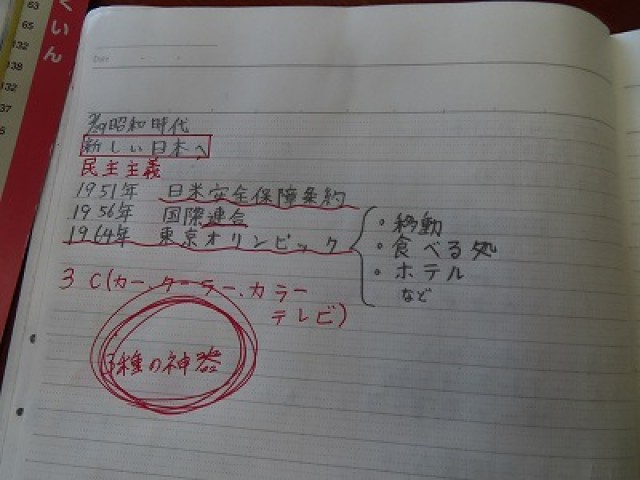 くいん
63
65
132
138
132
37
6
昭和時代
新しい日本へ
民主主義
1951年 日米安全保障条約
1956年 国際連合
1964年 東京オリンピック
・移動
・食べる処
・ホテル
など
3C(カー、クーラー、カラー
テレビ)
3種の神器